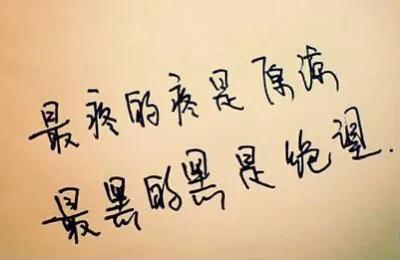 最疼的疼是原谅
最黑的黑是绝望.